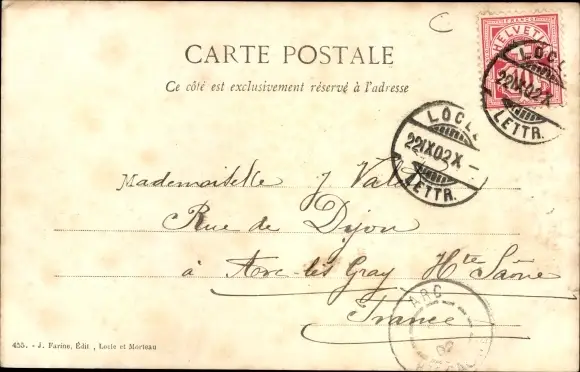 CARTE POSTALE
Ce côté est exclusivement réservé à l'adresse
FRANCO
HELVETIA
10
LOCLE
22 IX 02 X
LETTR.
LOCLE
22 IX 02 X –
LETTR.
Mademoiselle J
Rue de Dijon
à Arc-lès Gray Hte Saône
France
ARC
02
455. - J. Farine, Édit , Locle et Morteau